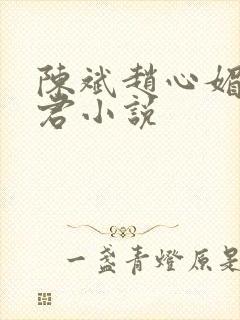 陳斌趙心媚
君小説
一盞青燈原是